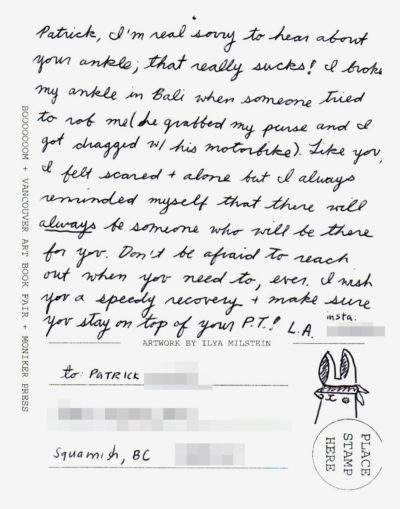 Patrick, I'm real sorry to hear about
your ankle; that really sucks! I broke
my ankle in Bali when someone tried
to rob me (he grabbed my purse and I
got dragged w/ his motorbike). Like you,
I felt scared + alone but I always
reminded myself that there will
always be someone who will be there
for you. Don't be afraid to reach
out when you need to, ever. I wish
you a speedy recovery + make sure
you stay on top of your P.T.! L.A.
insta:
ARTWORK BY ILYA MILSTEIN
to: PATRICK
Squamish, BC
PLACE
STAMP
HERE
BOOOOOOOM + VANCOUVER ART BOOK FAIR + MONIKER PRESS